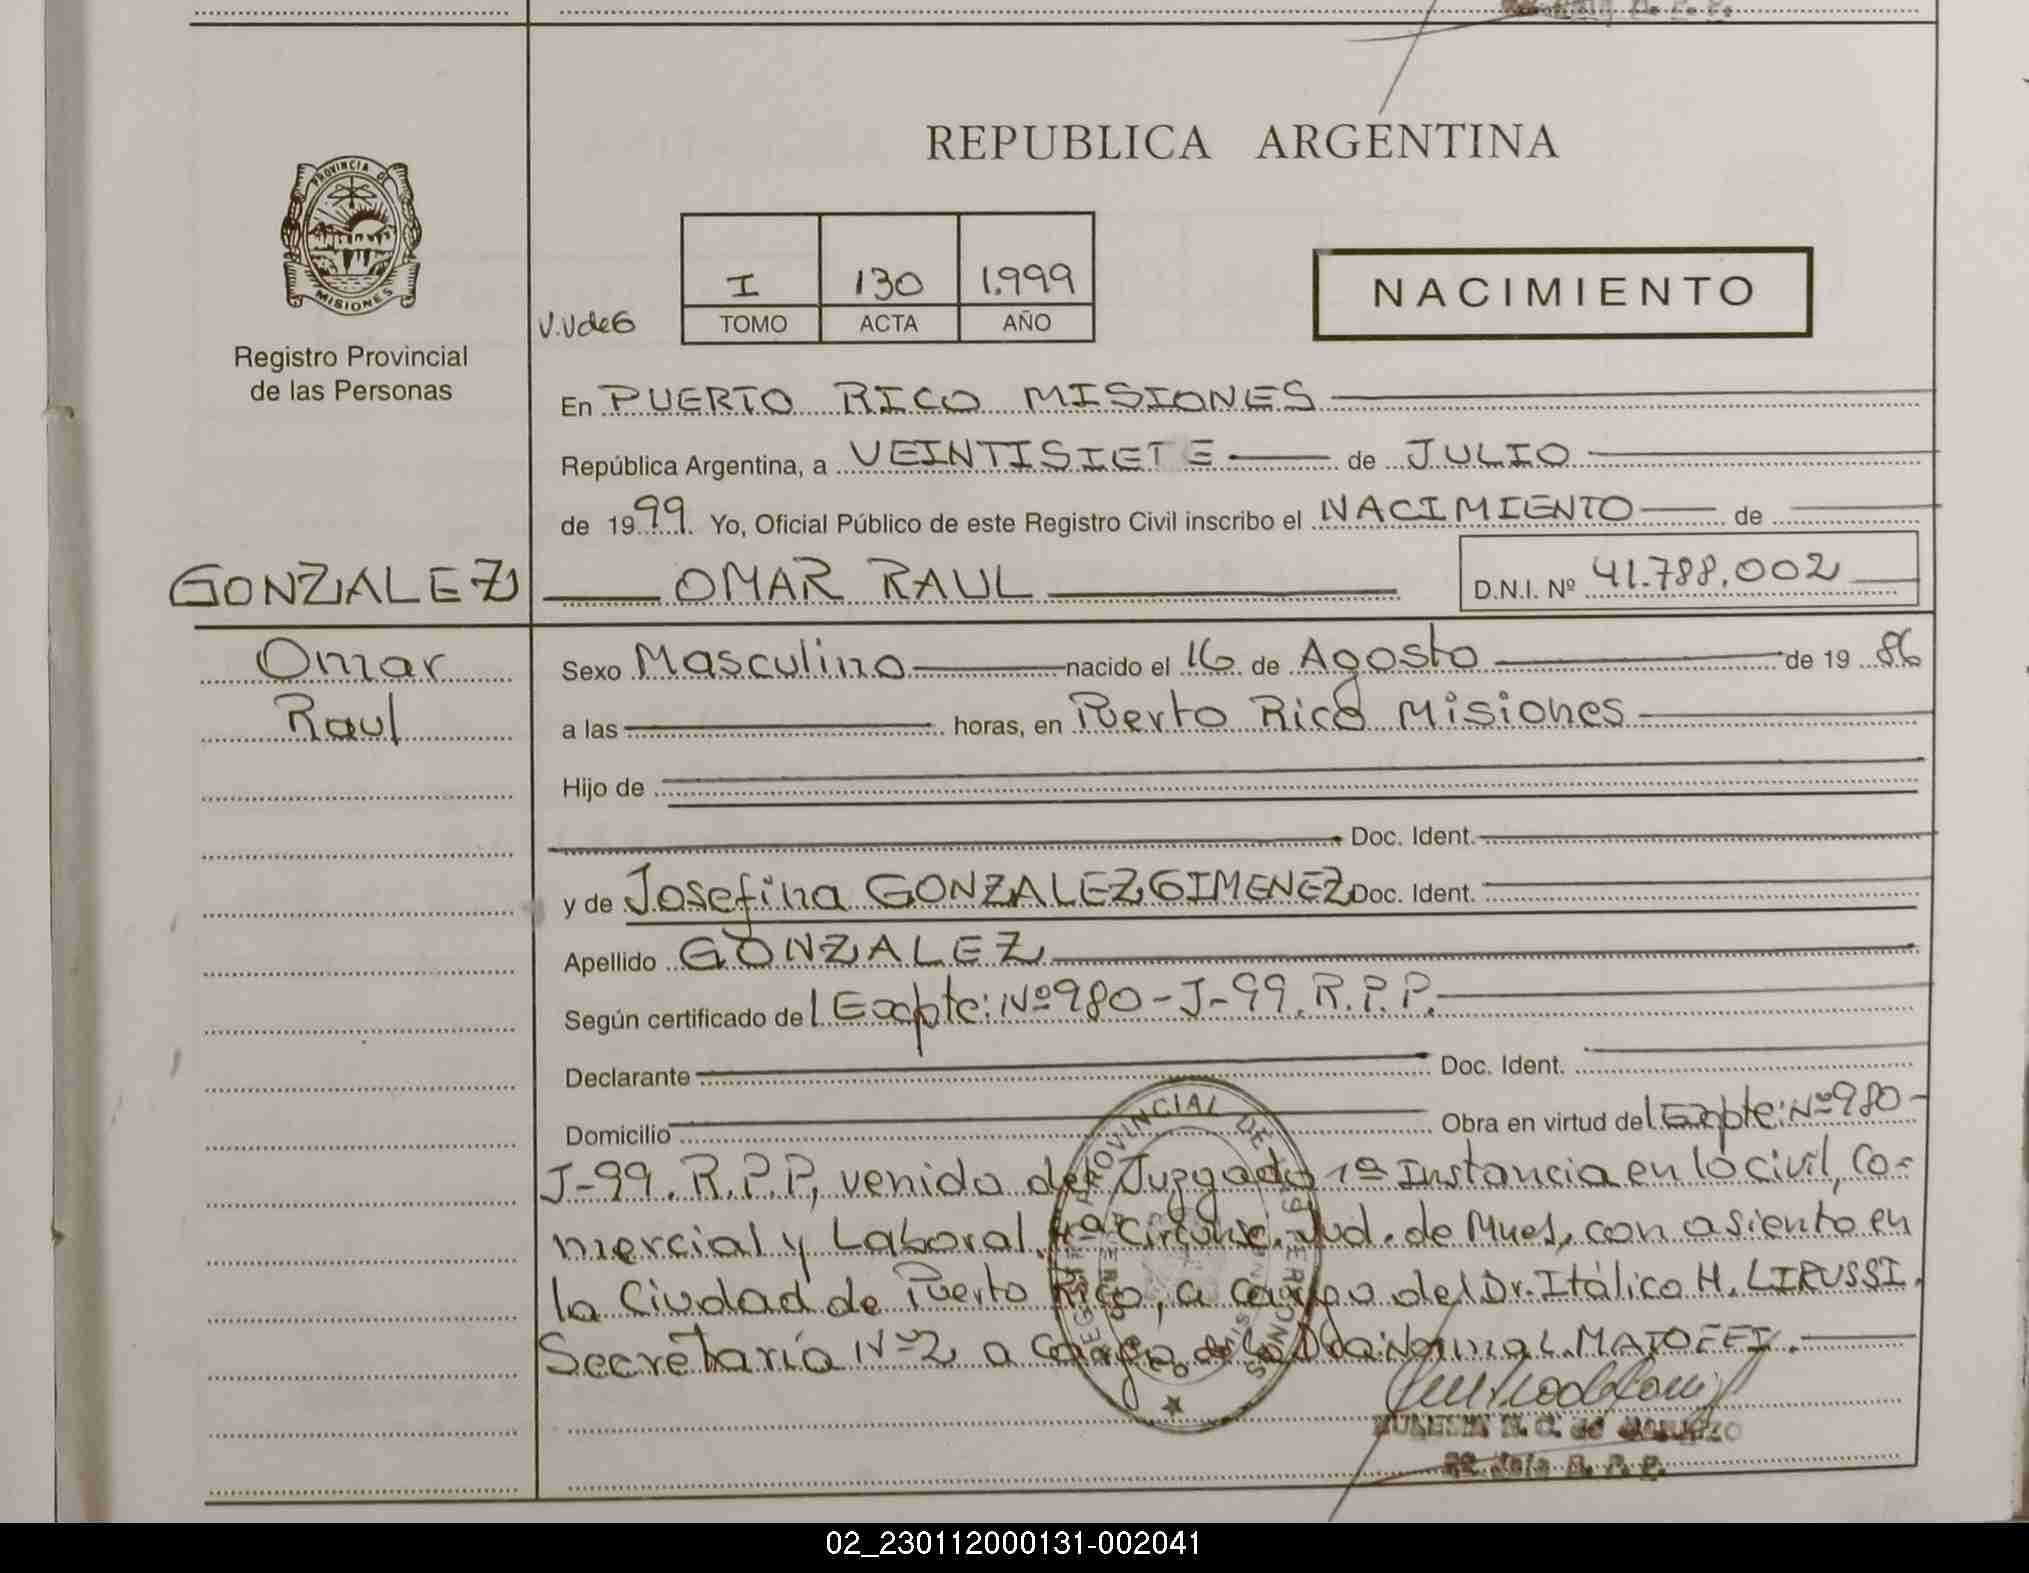 REPUBLICA ARGENTINA
PROVINCIA DE
MISIONES
Registro Provincial
de las Personas
V.Vde6
I 130 1.999
TOMO ACTA AÑO
NACIMIENTO
En PUERTO RICO MISIONES
República Argentina, a VEINTISIETE de JULIO
de 1999. Yo, Oficial Público de este Registro Civil inscribo el NACIMIENTO de
GONZALEZ OMAR RAUL D.N.I. Nº 41.788.002
Omar
Raul
Sexo Masculino nacido el 16 de Agosto de 19 86
a las horas, en Puerto Rico Misiones
Hijo de
Doc. Ident.
y de Josefina GONZALEZ GIMENEZ Doc. Ident.
Apellido GONZALEZ
Según certificado del Expte: Nº 980-J-99. R.P.P.
Declarante Doc. Ident.
Domicilio Obra en virtud del Expte: Nº 980-
J-99. R.P.P, venido del Juzgado 1ª Instancia en lo civil, Co-
mercial y Laboral, 4ª Circunsc. Jud. de Mnes, con asiento en
la Ciudad de Puerto Rico, a cargo del Dr. Itálico H. LIRUSSI.
Secretaría Nº 2 a cargo de la Dra: Norma L.
R. P. P.
02_230112000131-002041